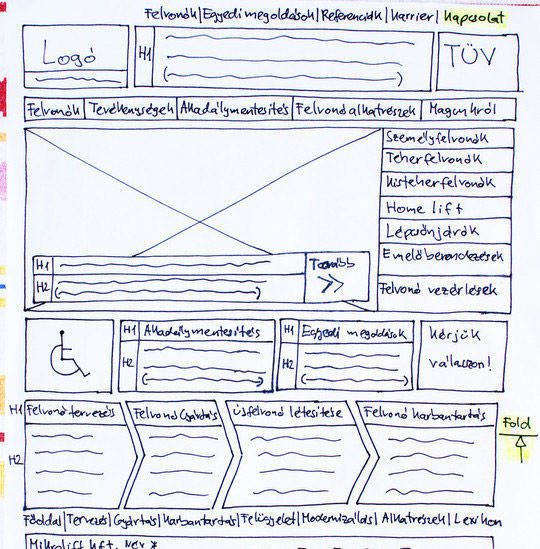 Felvonók | Egyedi megoldások | Referenciák | Karrier | Kapcsolat
Logó
H1
TÜV
Felvonók | Tevékenységek | Akadálymentesítés | Felvonó alkatrészek | Magunkról
Személyfelvonók
Teherfelvonók
Kisteherfelvonók
Home lift
Lépcsőnjárók
Emelőberendezések
Felvonó vezérlések
H1
H2
Tovább
>>
H1 Akadálymentesítés
H2
H1 Egyedi megoldások
H2
Kérjük
válasszon!
H1 Felvonó tervezés
Felvonó Gyártás
Újfelvonó létesítése
Felvonó karbantartás
H2
Fold
Főoldal | Tervezés | Gyártás | Karbantartás | Felügyelet | Modernizálás | Alkatrészek | Lexikon
Mikrolift kft.